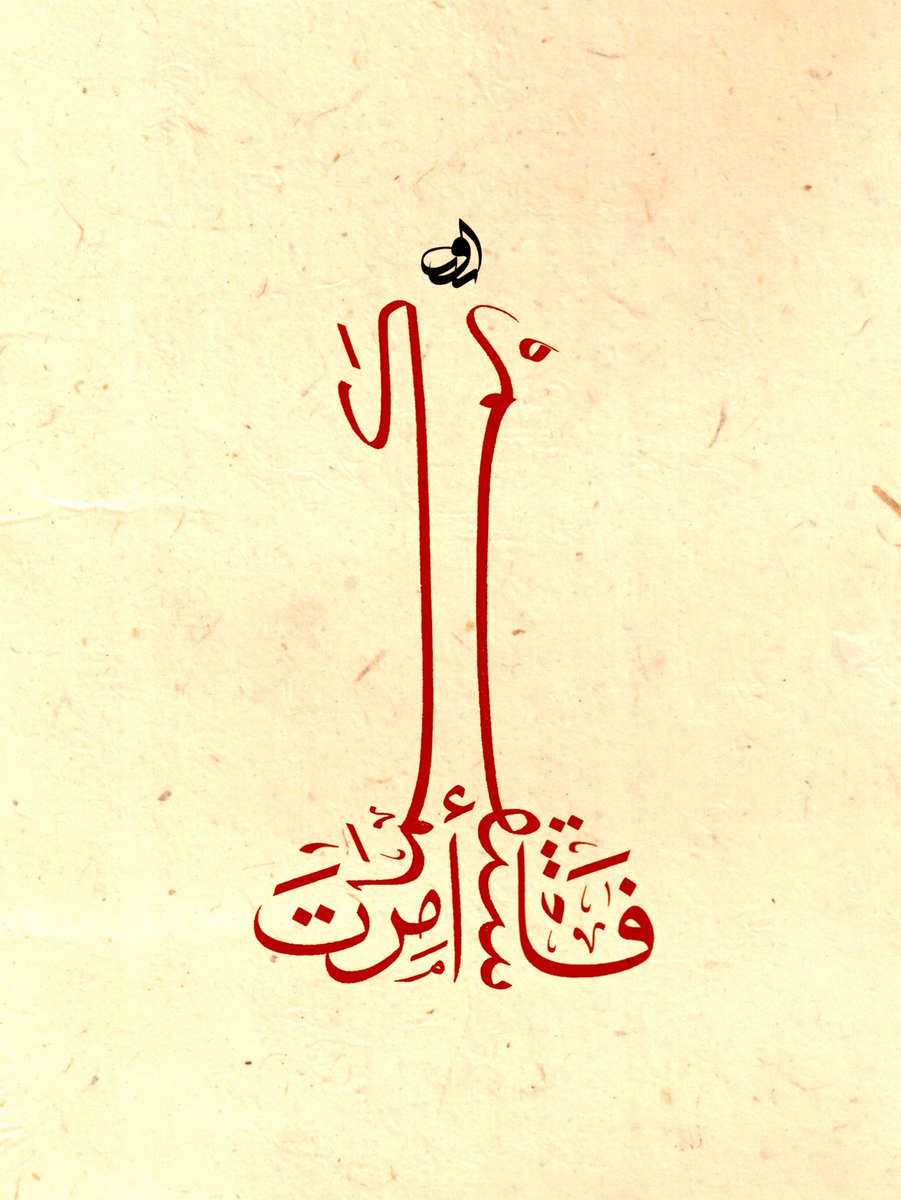 فَاستَقِم كَمَا أُمِرتَ